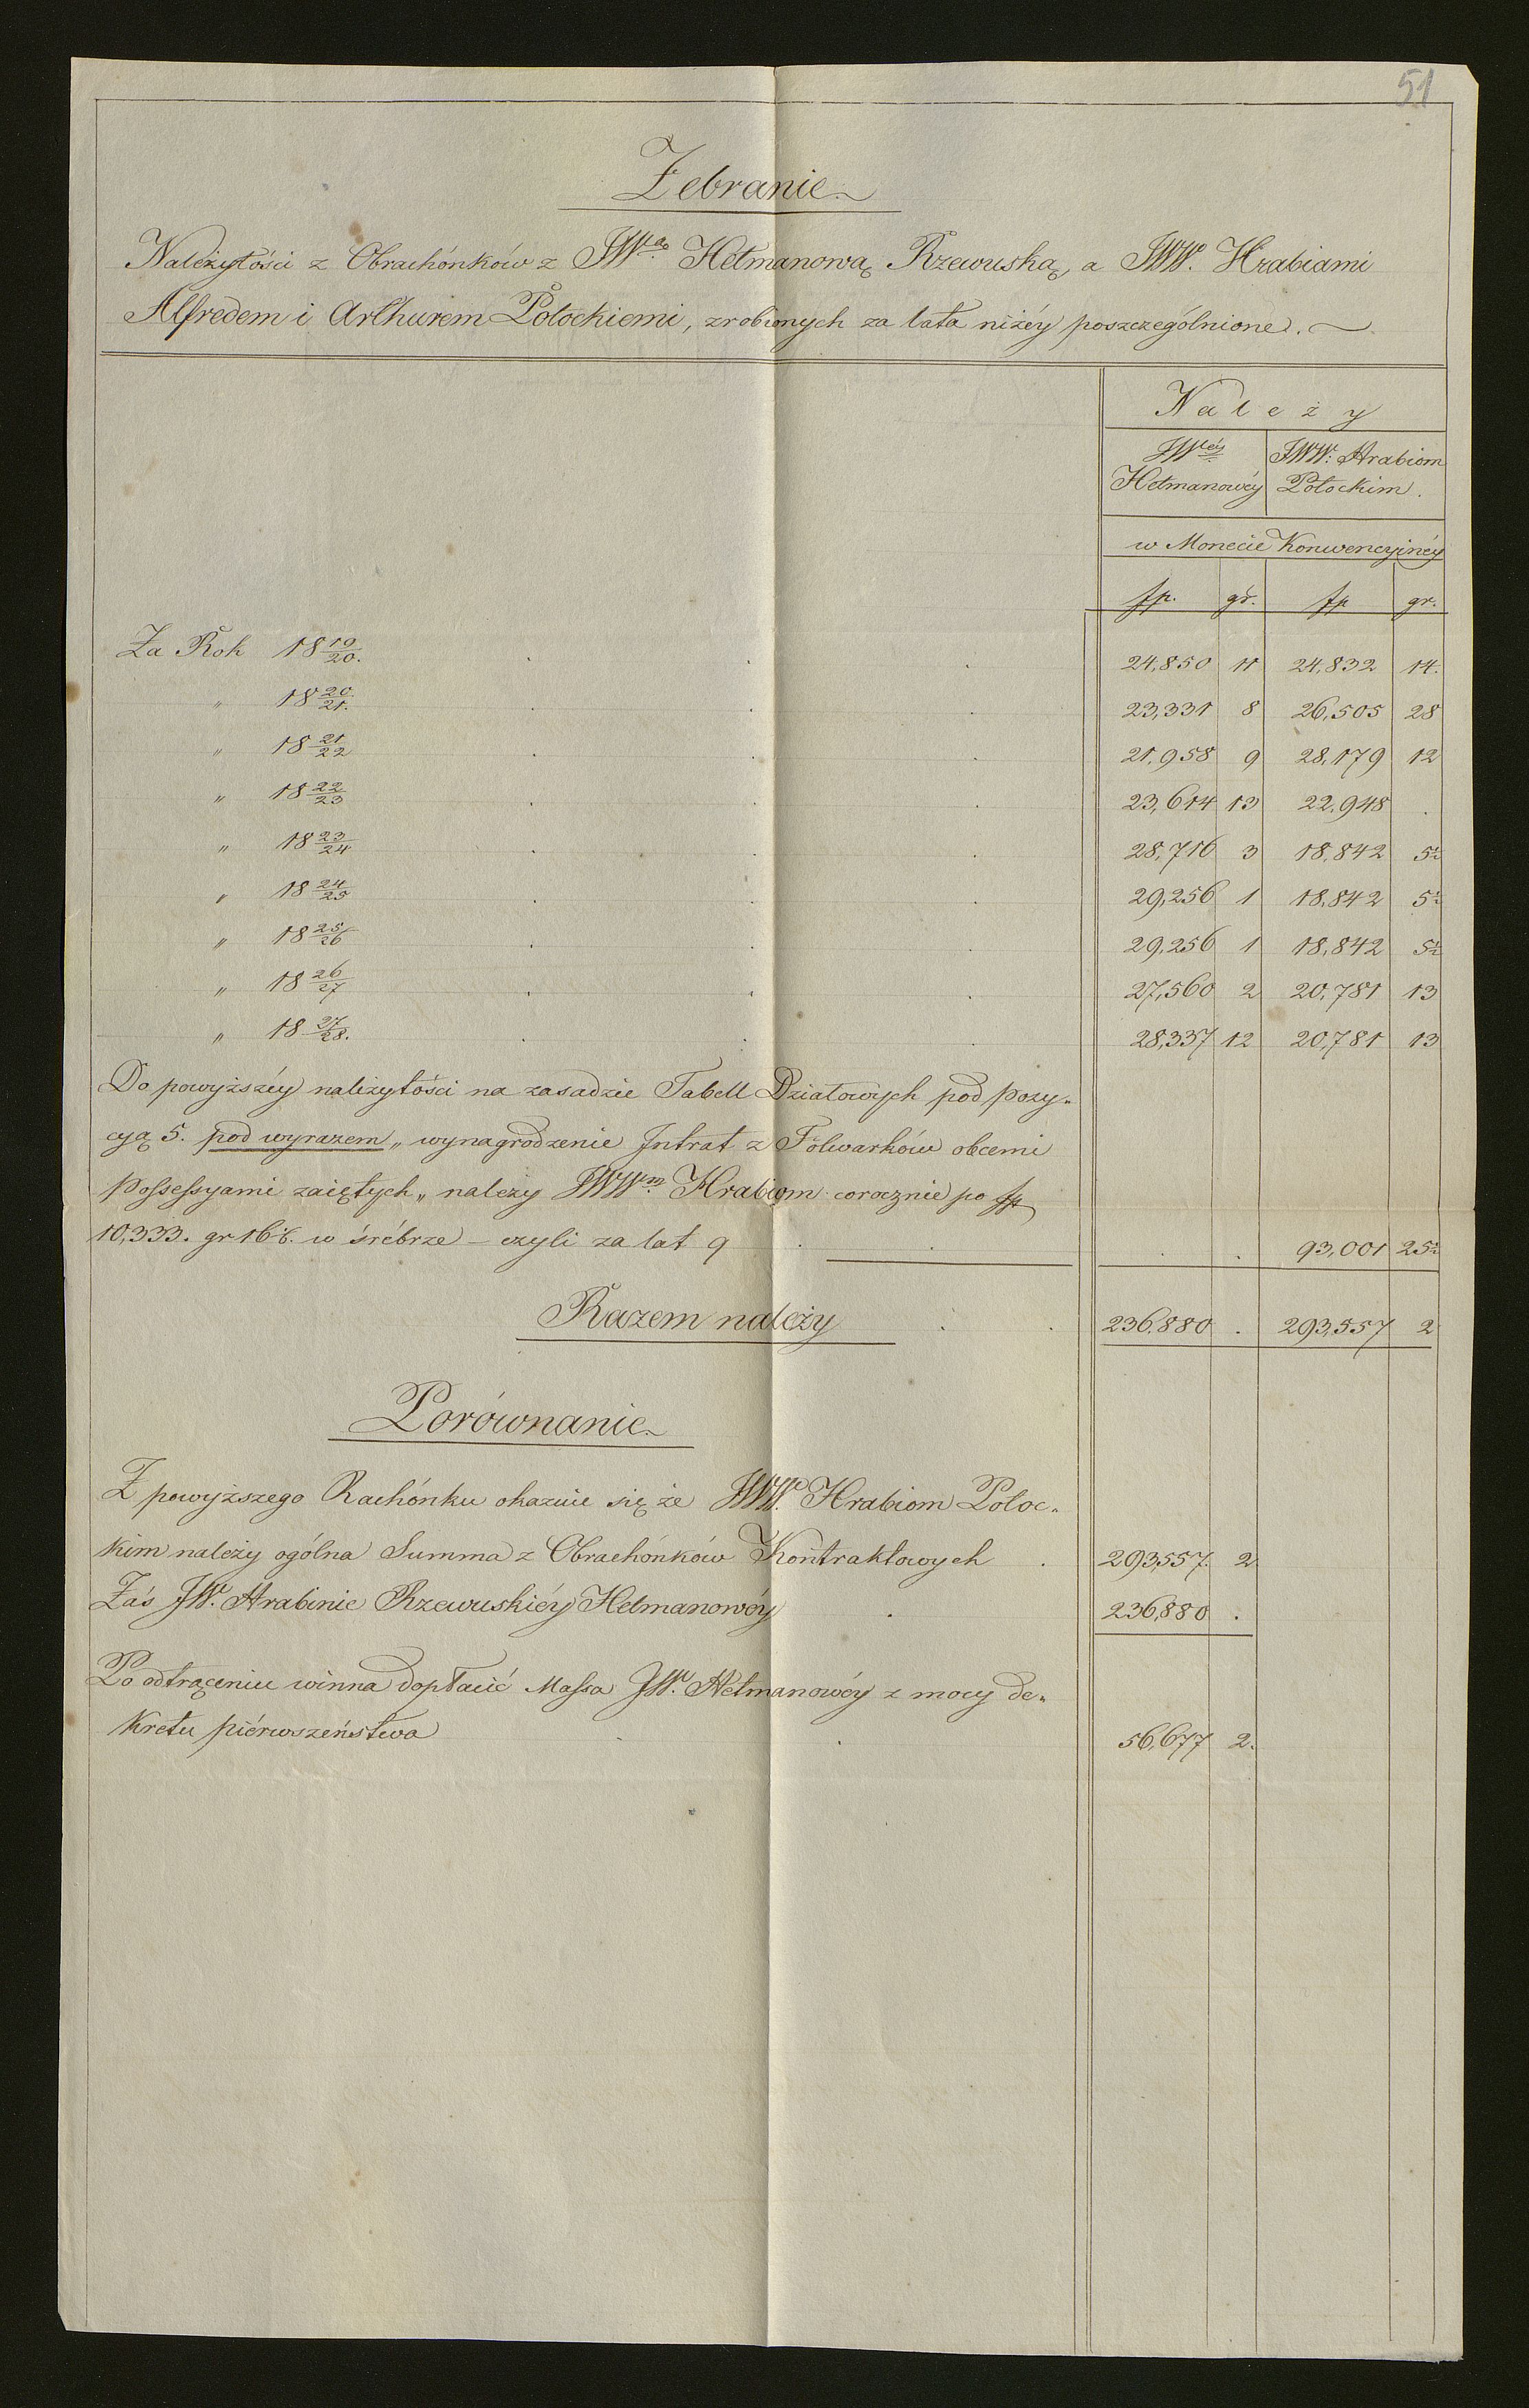 51
Zebranie
Należytości z Obrachónków z JW.ą Hetmanową Rzewuską, a JWW. Hrabiami
Alfredem i Arthurem Potockiemi, zrobionych za lata niżéy poszczególnione.
Należy
JWéy Hetmanowéy | JWW: Hrabiom Potockim.
w Monecie Konwencyjnéy
fp. | gr. | fp | gr.
Za Rok 18 19/20. 24,850 | 11 | 24,832 | 14.
" 18 20/21. 23,331 | 8 | 26,505 | 28
" 18 21/22 21,958 | 9 | 28,179 | 12
" 18 22/23 23,614 | 13 | 22,948 | .
" 18 23/24 28,716 | 3 | 18,842 | 5½
" 18 24/25 29,256 | 1 | 18,842 | 5½
" 18 25/26 29,256 | 1 | 18,842 | 5½
" 18 26/27 27,560 | 2 | 20,781 | 13
" 18 27/28. 28,337 | 12 | 20,781 | 13
Do powyższéy należytości na zasadzie Tabell Działowych pod pozy„
cyą 5. pod wyrazem „ wynagrodzenie Intrat z Folwarków obcemi
possessyami zaiętych „ należy JWWm. Hrabiom corocznie po fp
10,333. gr 16 w śrébrze – czyli za lat 9 . . 93,001 | 25½
Razem należy . . 236,880 | . | 293,557 | 2
Porównanie
Z powyższego Rachónku okazuie się że JWW. Hrabiom Potoc„
kim należy ogólna Summa z Obrachónków Kontraktowych . 293,557. | 2
Zaś JW. Hrabinie Rzewuskiéy Hetmanowéy . 236,880 | .
Po odtrąceniu winna dopłacić Massa JW. Hetmanowéy z mocy de„
kretu piérwszeństwa . . 56,677 | 2.